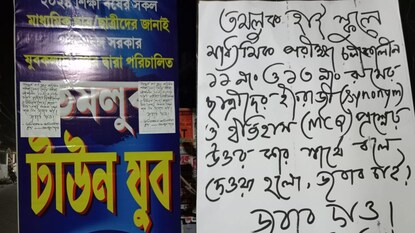 ২০২৪ শিক্ষা বর্ষের সকল
মাধ্যমিক ছাত্র/ছাত্রীদের জানাই
সরকার
যুবকল্যাণ দ্বারা পরিচালিত
তমলুক
টাউন যুব
তমলুক হাই স্কুলে
মাধ্যমিক পরীক্ষা চলাকালীন
১১ নং ও ১৩ নং রুমের
ছাত্রীদের ইংরাজী (Synonym)
ও ইতিহাস (MCQ) প্রশ্নের
উত্তর কার স্বার্থে বলে
দেওয়া হলো, জবাব চাই!
জবাব চাও!